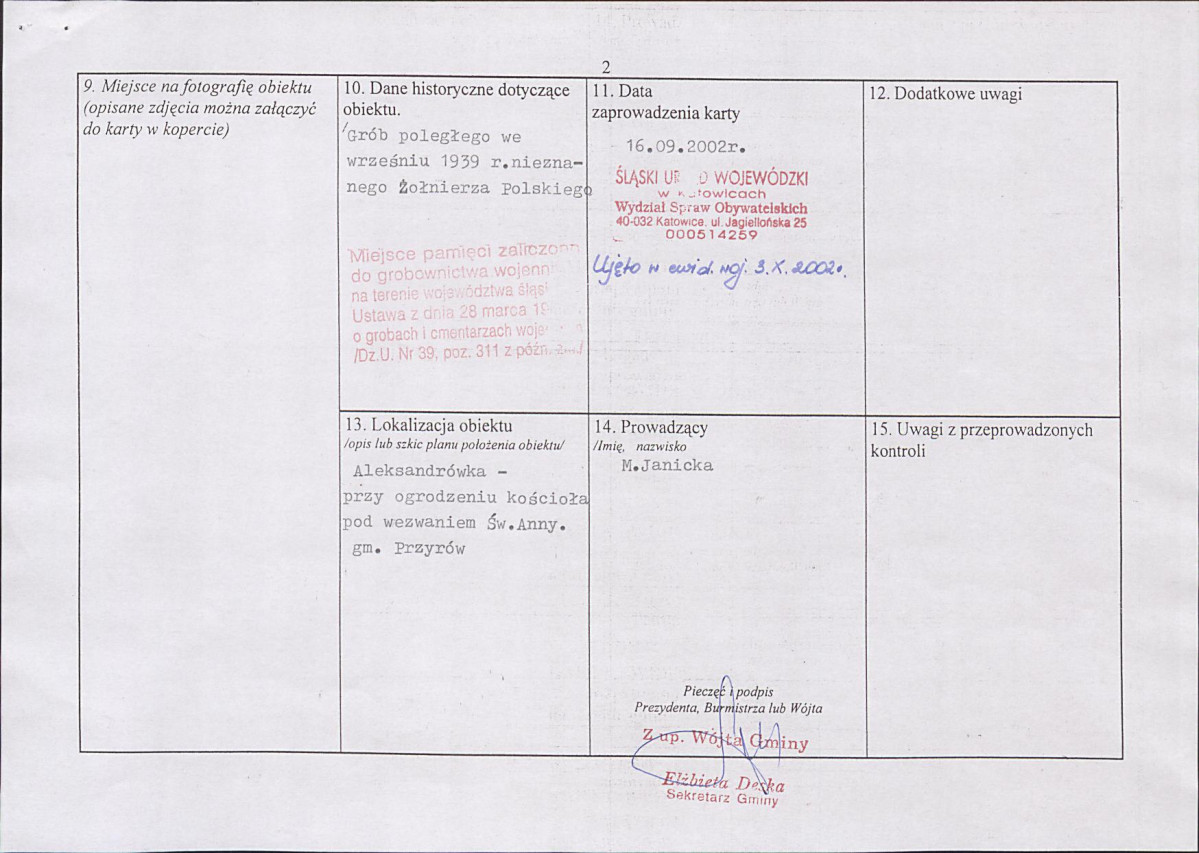 2
9. Miejsce na fotografię obiektu
(opisane zdjęcia można załączyć
do karty w kopercie)
10. Dane historyczne dotyczące
obiektu.
/Grób poległego we
wrześniu 1939 r.niezna-
nego Żołnierza Polskiego
Miejsce pamięci
do grobownictwa
na terenie województwa
Ustawa z dnia 28 marca
o grobach i cmentarzach
/Dz.U. Nr 39, poz. 311 z późn.
11. Data
zaprowadzenia karty
16.09.2002r.
ŚLĄSKI WOJEWÓDZKI
w
Wydział Spraw Obywatelskich
40-032 Katowice, ul. Jagiellońska 25
000514259
Ujęto w ewid. woj. 3.X.2002.
12. Dodatkowe uwagi
13. Lokalizacja obiektu
/opis lub szkic planu położenia obiektu/
Aleksandrówka -
przy ogrodzeniu kościoła
pod wezwaniem Św.Anny.
gm. Przyrów
14. Prowadzący
/Imię, nazwisko
M.Janicka
Pieczęć i podpis
Prezydenta, Burmistrza lub Wójta
Z up. Wójta Gminy
Elżbieta
Sekretarz Gminy
15. Uwagi z przeprowadzonych
kontroli